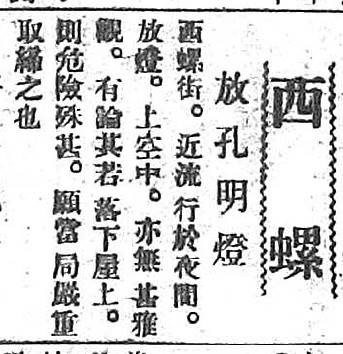 西螺
放孔明燈
西螺街。近流行於夜間。
放燈。上空中。亦無甚雅
觀。有論其若落下屋上。
則危險殊甚。願當局嚴重
取締之也